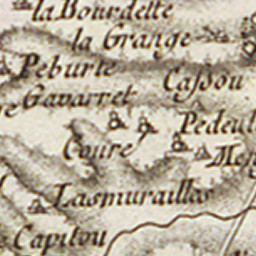 la Bourdette
la Grange
Peburte
Cassou
Gavarret
Coure
Lasmurailles
Capitou